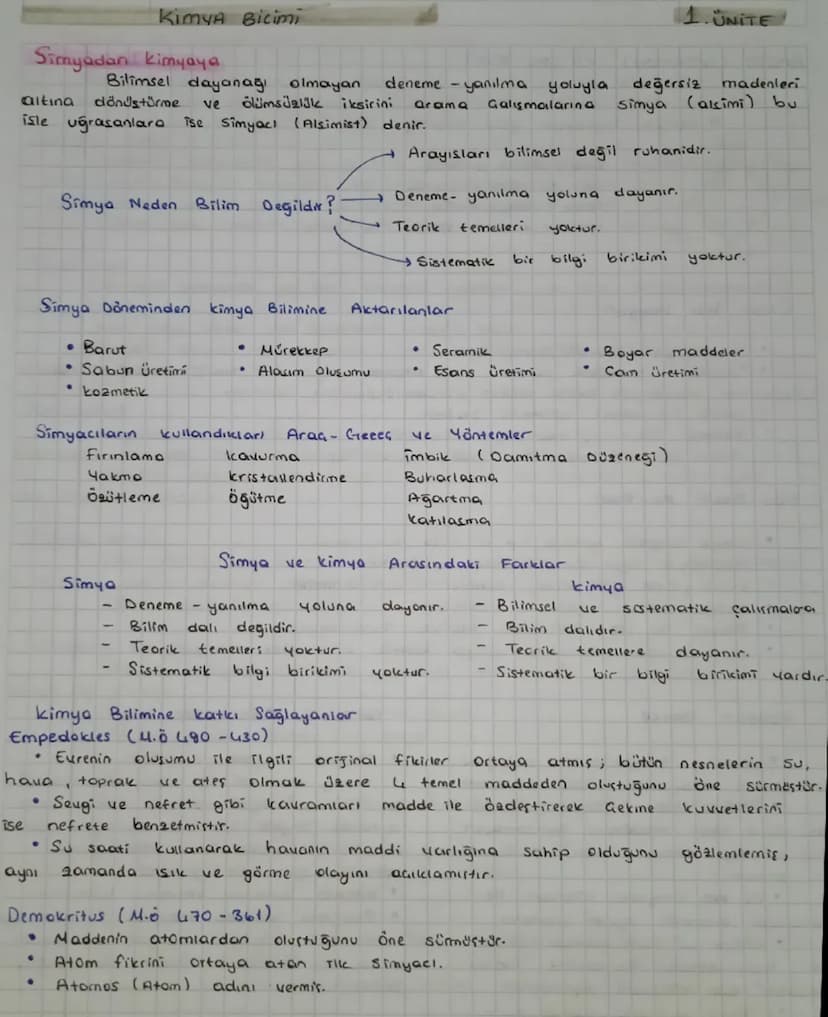 Kimya Bilimi 1. ÜNİTE
Simyadan kimyaya
Bilimsel dayanağı olmayan deneme-yanılma yoluyla değersiz madenleri
altına dönüştürme ve ölümsüzlük iksirini arama çalışmalarına simya (alşimi) bu
işle uğraşanlara ise simyacı (Alşimist) denir.
Simya Neden Bilim Değildir?
Arayışları bilimsel değil ruhanidir.
Deneme-yanılma yoluna dayanır.
Teorik temelleri yoktur.
Sistematik bir bilgi birikimi yoktur.
Simya Döneminden kimya Bilimine Aktarılanlar
• Barut • Mürekkep • Seramik • Boyar maddeler
• Sabun üretimi • Alaşım Oluşumu • Esans üretimi • Cam üretimi
• kozmetik
Simyacıların kullandıkları Araç-Gereç ve Yöntemler
Fırınlama kavurma imbik (Damıtma Düzeneği)
Yakma kristallendirme Buharlaşma
Özütleme öğütme Ağartma
katılaşma
Simya ve kimya Arasındaki Farklar
Simya kimya
- Deneme-yanılma yoluna dayanır. - Bilimsel ve sistematik çalışmalara
- Bilim dalı değildir. - Bilim dalıdır.
- Teorik temelleri yoktur. - Teorik temellere dayanır.
- Sistematik bilgi birikimi yoktur. - Sistematik bir bilgi birikimi vardır.
kimya Bilimine katkı Sağlayanlar
Empedokles (M.Ö 490-430)
• Evrenin oluşumu ile ilgili orijinal fikirler ortaya atmış; bütün nesnelerin su,
hava, toprak ve ateş olmak üzere 4 temel maddeden oluştuğunu öne sürmüştür.
• Sevgi ve nefret gibi kavramları madde ile özdeştirerek çekme kuvvetlerini
ise nefrete benzetmiştir.
• Su saati kullanarak havanın maddi varlığına sahip olduğunu gözlemlemiş,
aynı zamanda ışık ve görme olayını açıklamıştır.
Demokritus (M.Ö 470-361)
• Maddenin atomlardan oluştuğunu öne sürmüştür.
• Atom fikrini ortaya atan ilk simyacı.
• Atomos (Atom) adını vermiş.